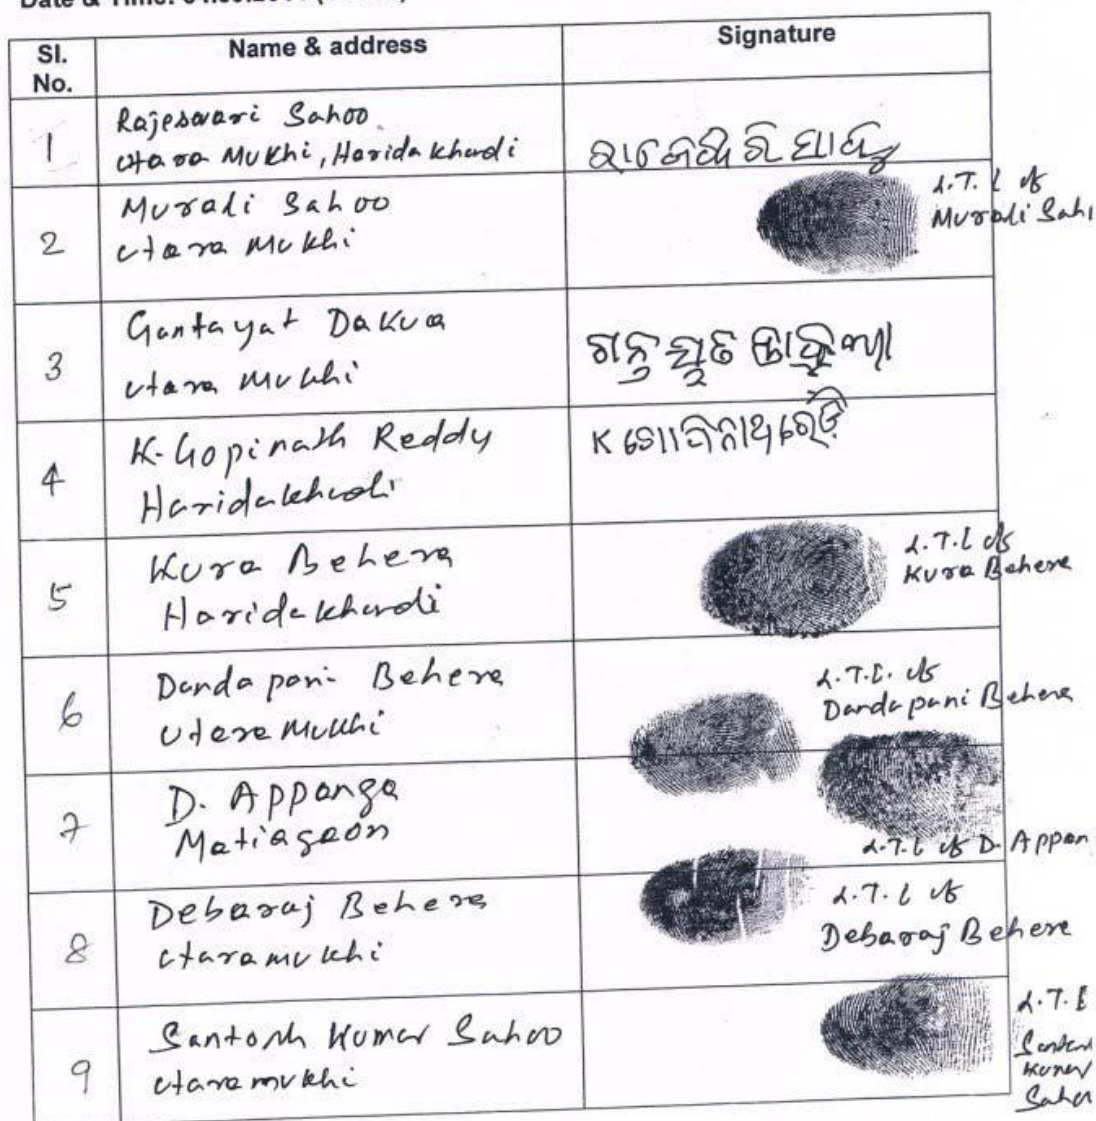 Sl. No. Name & address Signature
1
Rajeswari Sahoo
Utara Mukhi, Haridakhandi
ରାଜେଶ୍ୱରି ସାହୁ
2
Murali Sahoo
Utara Mukhi
L.T.I of
Murali Saho
3
Gantayat Dakua
Utara Mukhi
4
K. Gopinath Reddy
Haridakhandi
K ଗୋପିନାଥ ରେଡ୍ଡି
5
Kura Behera
Haridakhandi
L.T.I of
Kura Behera
6
Dandapani Behera
Utara Mukhi
L.T.I. of
Dandapani Behera
7
D. Appanga
Matiagaon
L.T.I of D. Appan
8
Debaraj Behera
Utaramukhi
L.T.I of
Debaraj Behera
9
Santosh Kumar Sahoo
Utaramukhi
L.T.I
Kumar